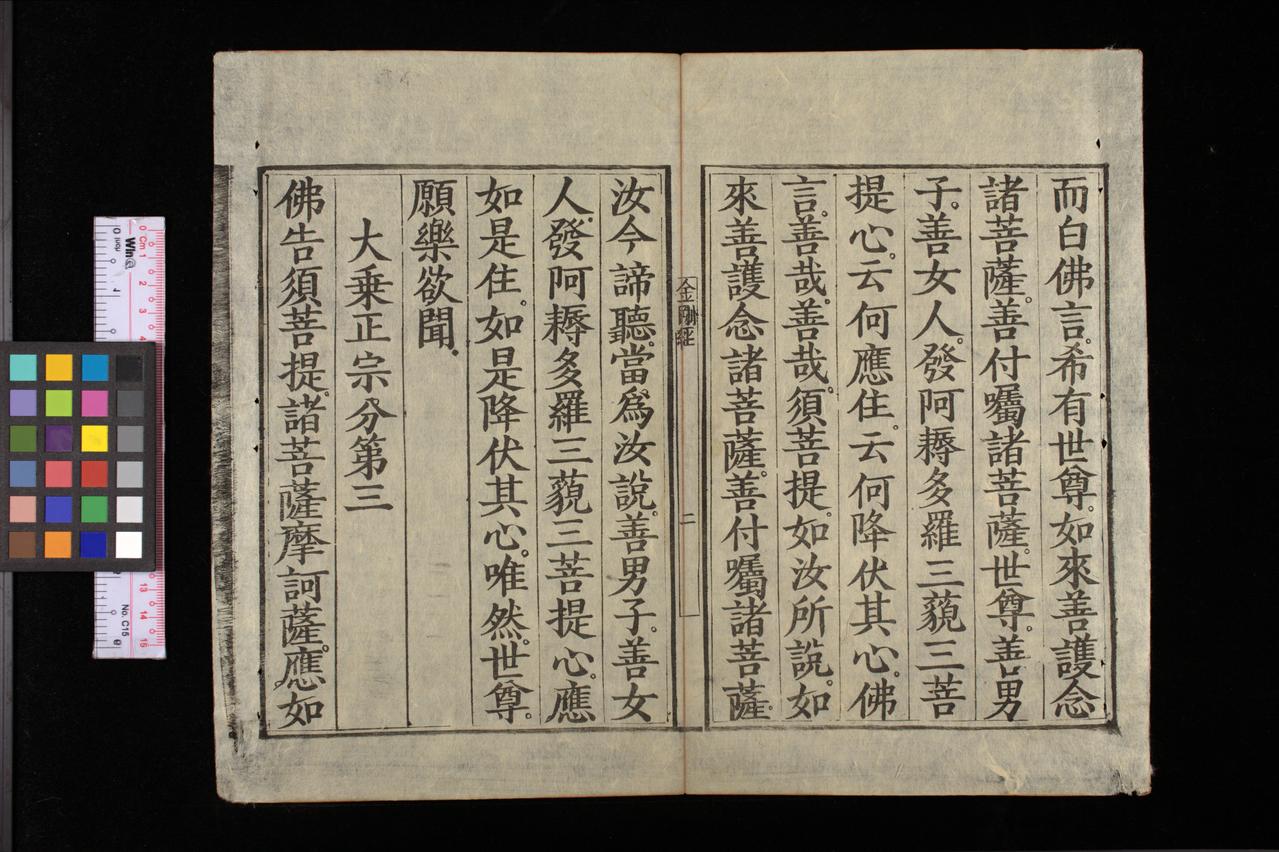 而白佛言。希有世尊。如來善護念
諸菩薩。善付囑諸菩薩。世尊。善男
子。善女人。發阿耨多羅三藐三菩
提心。云何應住。云何降伏其心。佛
言。善哉。善哉。須菩提。如汝所說。如
來善護念諸菩薩。善付囑諸菩薩。
金剛經
二
汝今諦聽。當爲汝說。善男子。善女
人。發阿耨多羅三藐三菩提心。應
如是住。如是降伏其心。唯然。世尊。
願樂欲聞。
大乘正宗分第三
佛告須菩提。諸菩薩摩訶薩。應如
0 Cm 1 2 3 4 13 14 15
No. C15